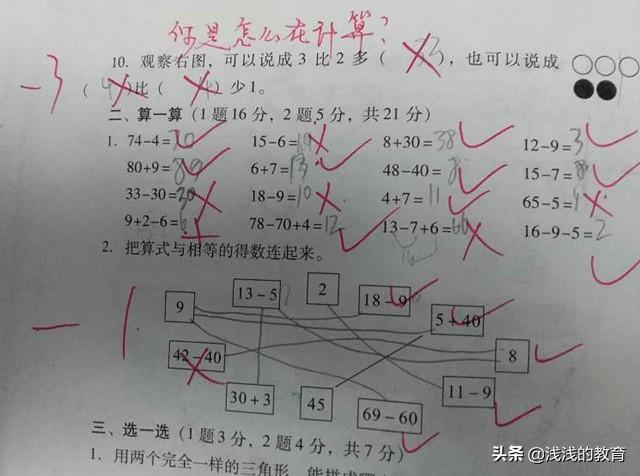 你是怎么在计算?
10. 观察右图，可以说成 3 比 2 多（ 3），也可以说成
-3
（ ）比（ ）少 1。
二、算一算（1 题 16 分，2 题 5 分，共 21 分）
1. 74-4=70 15-6=19 8+30=38 12-9=3
80+9=89 6+7=13 48-40=8 15-7=8
33-30=30 18-9=10 4+7=11 65-5=
9+2-6=6 78-70+4=12 13-7+6=66 16-9-5=2
2. 把算式与相等的得数连起来。
9 13-5 2 18-9 5+40
-1
42-40 8
30+3 45 69-60 11-9
三、选一选（1 题 3 分，2 题 4 分，共 7 分）
1. 用两个完全一样的三角形，能拼成哪
头条 @浅浅的教育